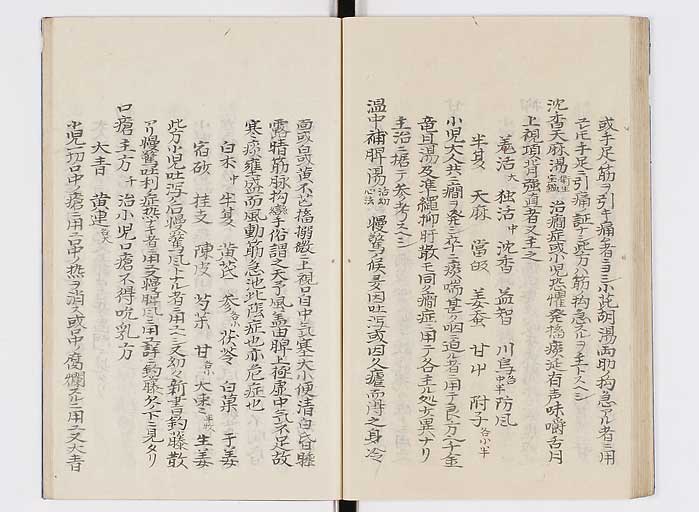 或手足ノ筋ヲ引キ痛者ニヨシ小柴胡湯両助ノ拘急アル者ニ用
ヒ手足ニ引痛ノ証ナレ此方ハ筋ノ拘急スルヲ主トスヘシ
沈香天麻湯 治癇症或小児恐懼発搐痰涎有声味嚼舌
上視項背強直者又主之
羌活 独活 沈香 益智 川烏 防風
半夏 天麻 當皈 姜蚕 甘 附子
小児大人共ニ癇ヲ発シ卒ニ痰喘甚ク咽ニ迫ル者ニ用テ良方ナリ
竜胆湯及準縄抑肝散モ同ク癇症ニ用テ各主ル処少異ヘナリ
主治ニ拠テ参考スヘシ
温中補脾湯 慢驚ノ候多因吐瀉或因久瘧而得之身冷
面或白或黄不甚搐搦微微上視口中気寒大小便清白昏睡
露睛筋脉拘攣手俗謂之天予風蓋由脾土極虚中気不足故
寒痰壅盛而風動筋急池此陰症也亦危症也
白朮 半夏 黄芪 参 茯苓 白菓 干姜
宿砂 桂支 陳皮 芍薬 甘 大棗 生姜
此方小児吐瀉ノ后慢驚風トナル者ニ用ユ又幼々新書ノ釣藤散
アリ慢驚吐利ノ症熱ナキ者ニ用又慢脾風ニ用ユ詳ニ釣藤ノ欠下ニ見タリ
口瘡主方 千 治小児口瘡不得吮乳方
大青 黄連
小児一切口中ノ瘡ニ用ユ口中ノ熱ヲ消ス或口中腐爛スルニ用ユ又大青